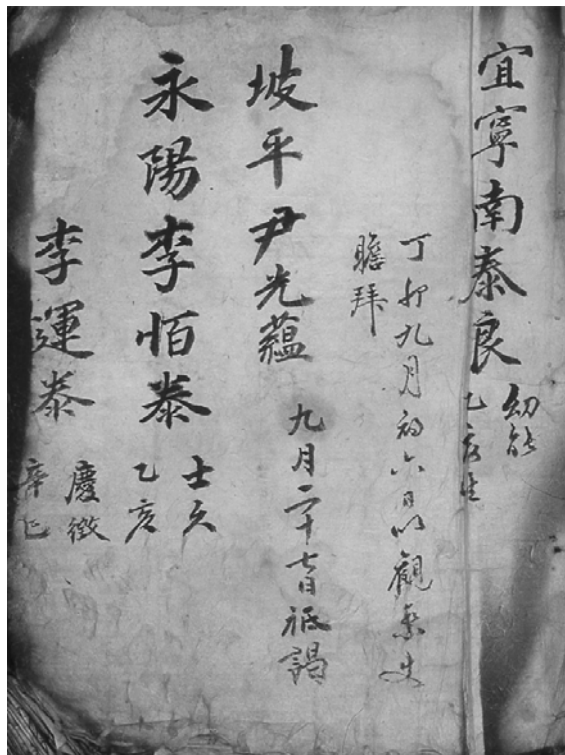 宜寧南泰良
幼能
乙亥生
丁卯九月初六日以觀察使
瞻拜
坡平尹光蘊
九月二十七日祗謁
永陽李恒泰
士久
乙亥
李運泰
慶徵
辛巳